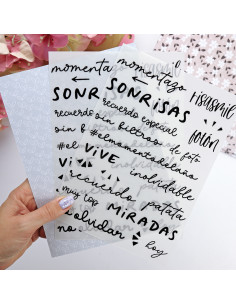 momentazo momentazo
SONR SONRISAS Risasmil
recuerdo recuerdo especial fotón
sin f sin filtros de foto
#el #elmomentodelaño
VI VIVE inolvidable
recuerdo patata
muy top MIRADAS
no olvidar hoy